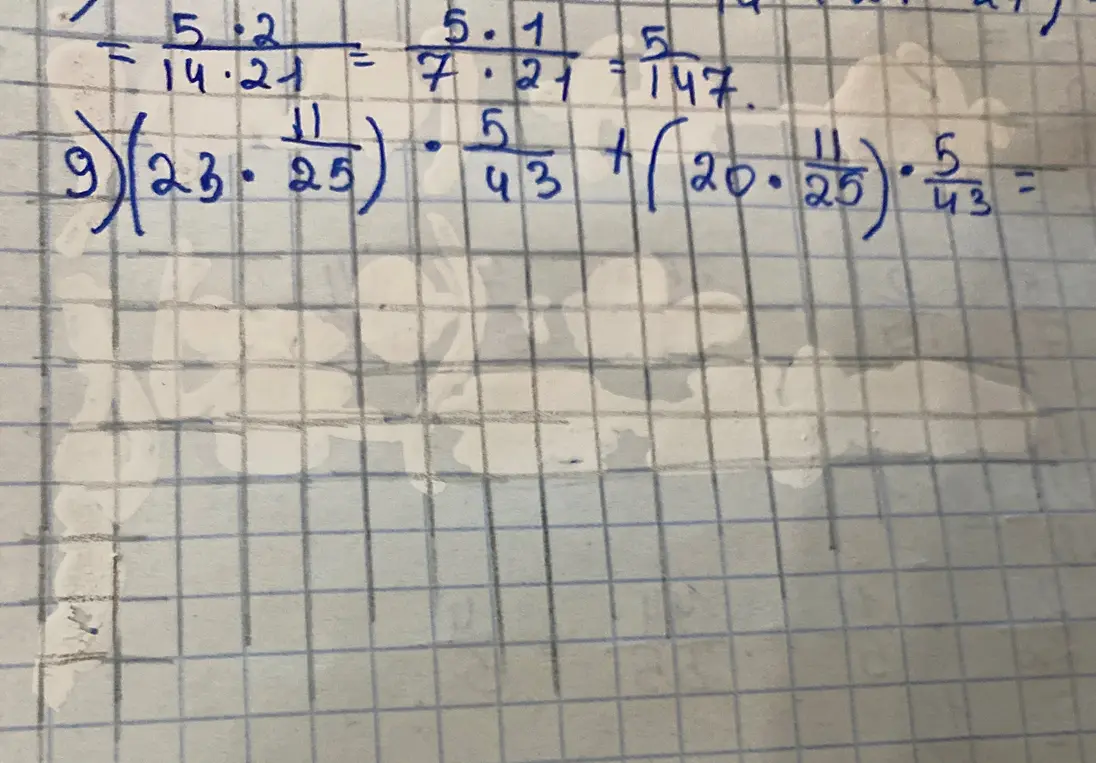 = 5 · 2 / 14 · 21 = 5 · 1 / 7 · 21 = 5 / 147.
9) (23 · 11/25) · 5/43 + (20 · 11/25) · 5/43 =